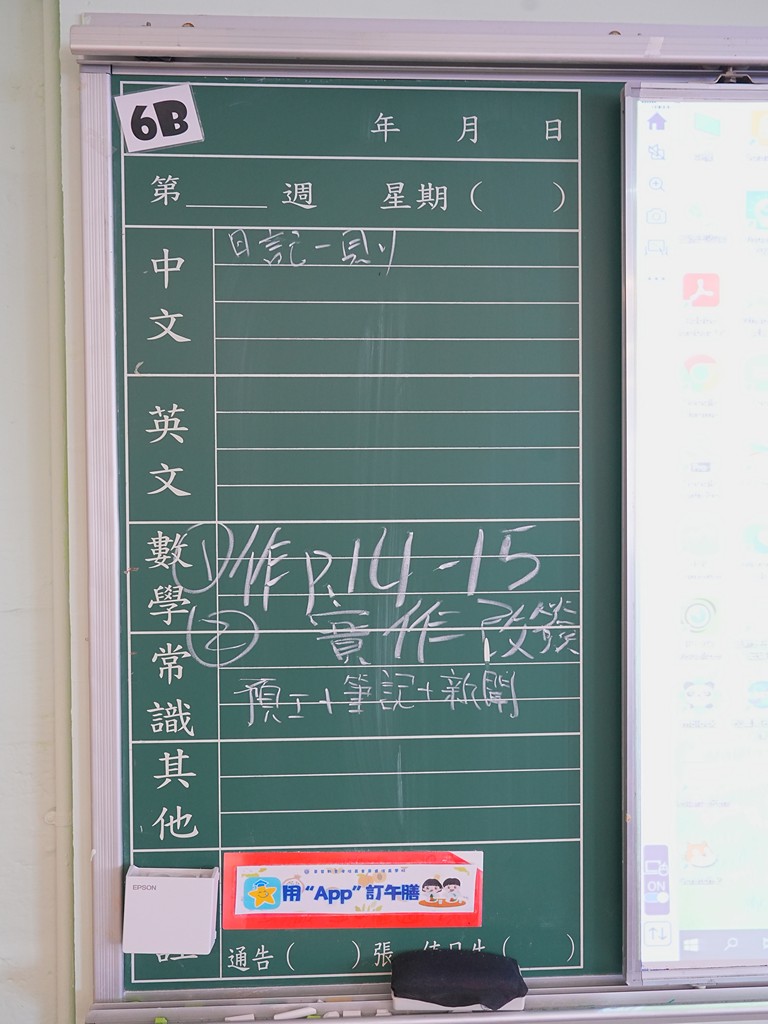 6B
年 月 日
第 週 星期( )
中文
日記一則
英文
數學
①作 p.14-15
② 實作 改簽
常識
預工+筆記+新聞
其他
EPSON
用 “App” 訂午膳
通告( )張 值日生( )
ON